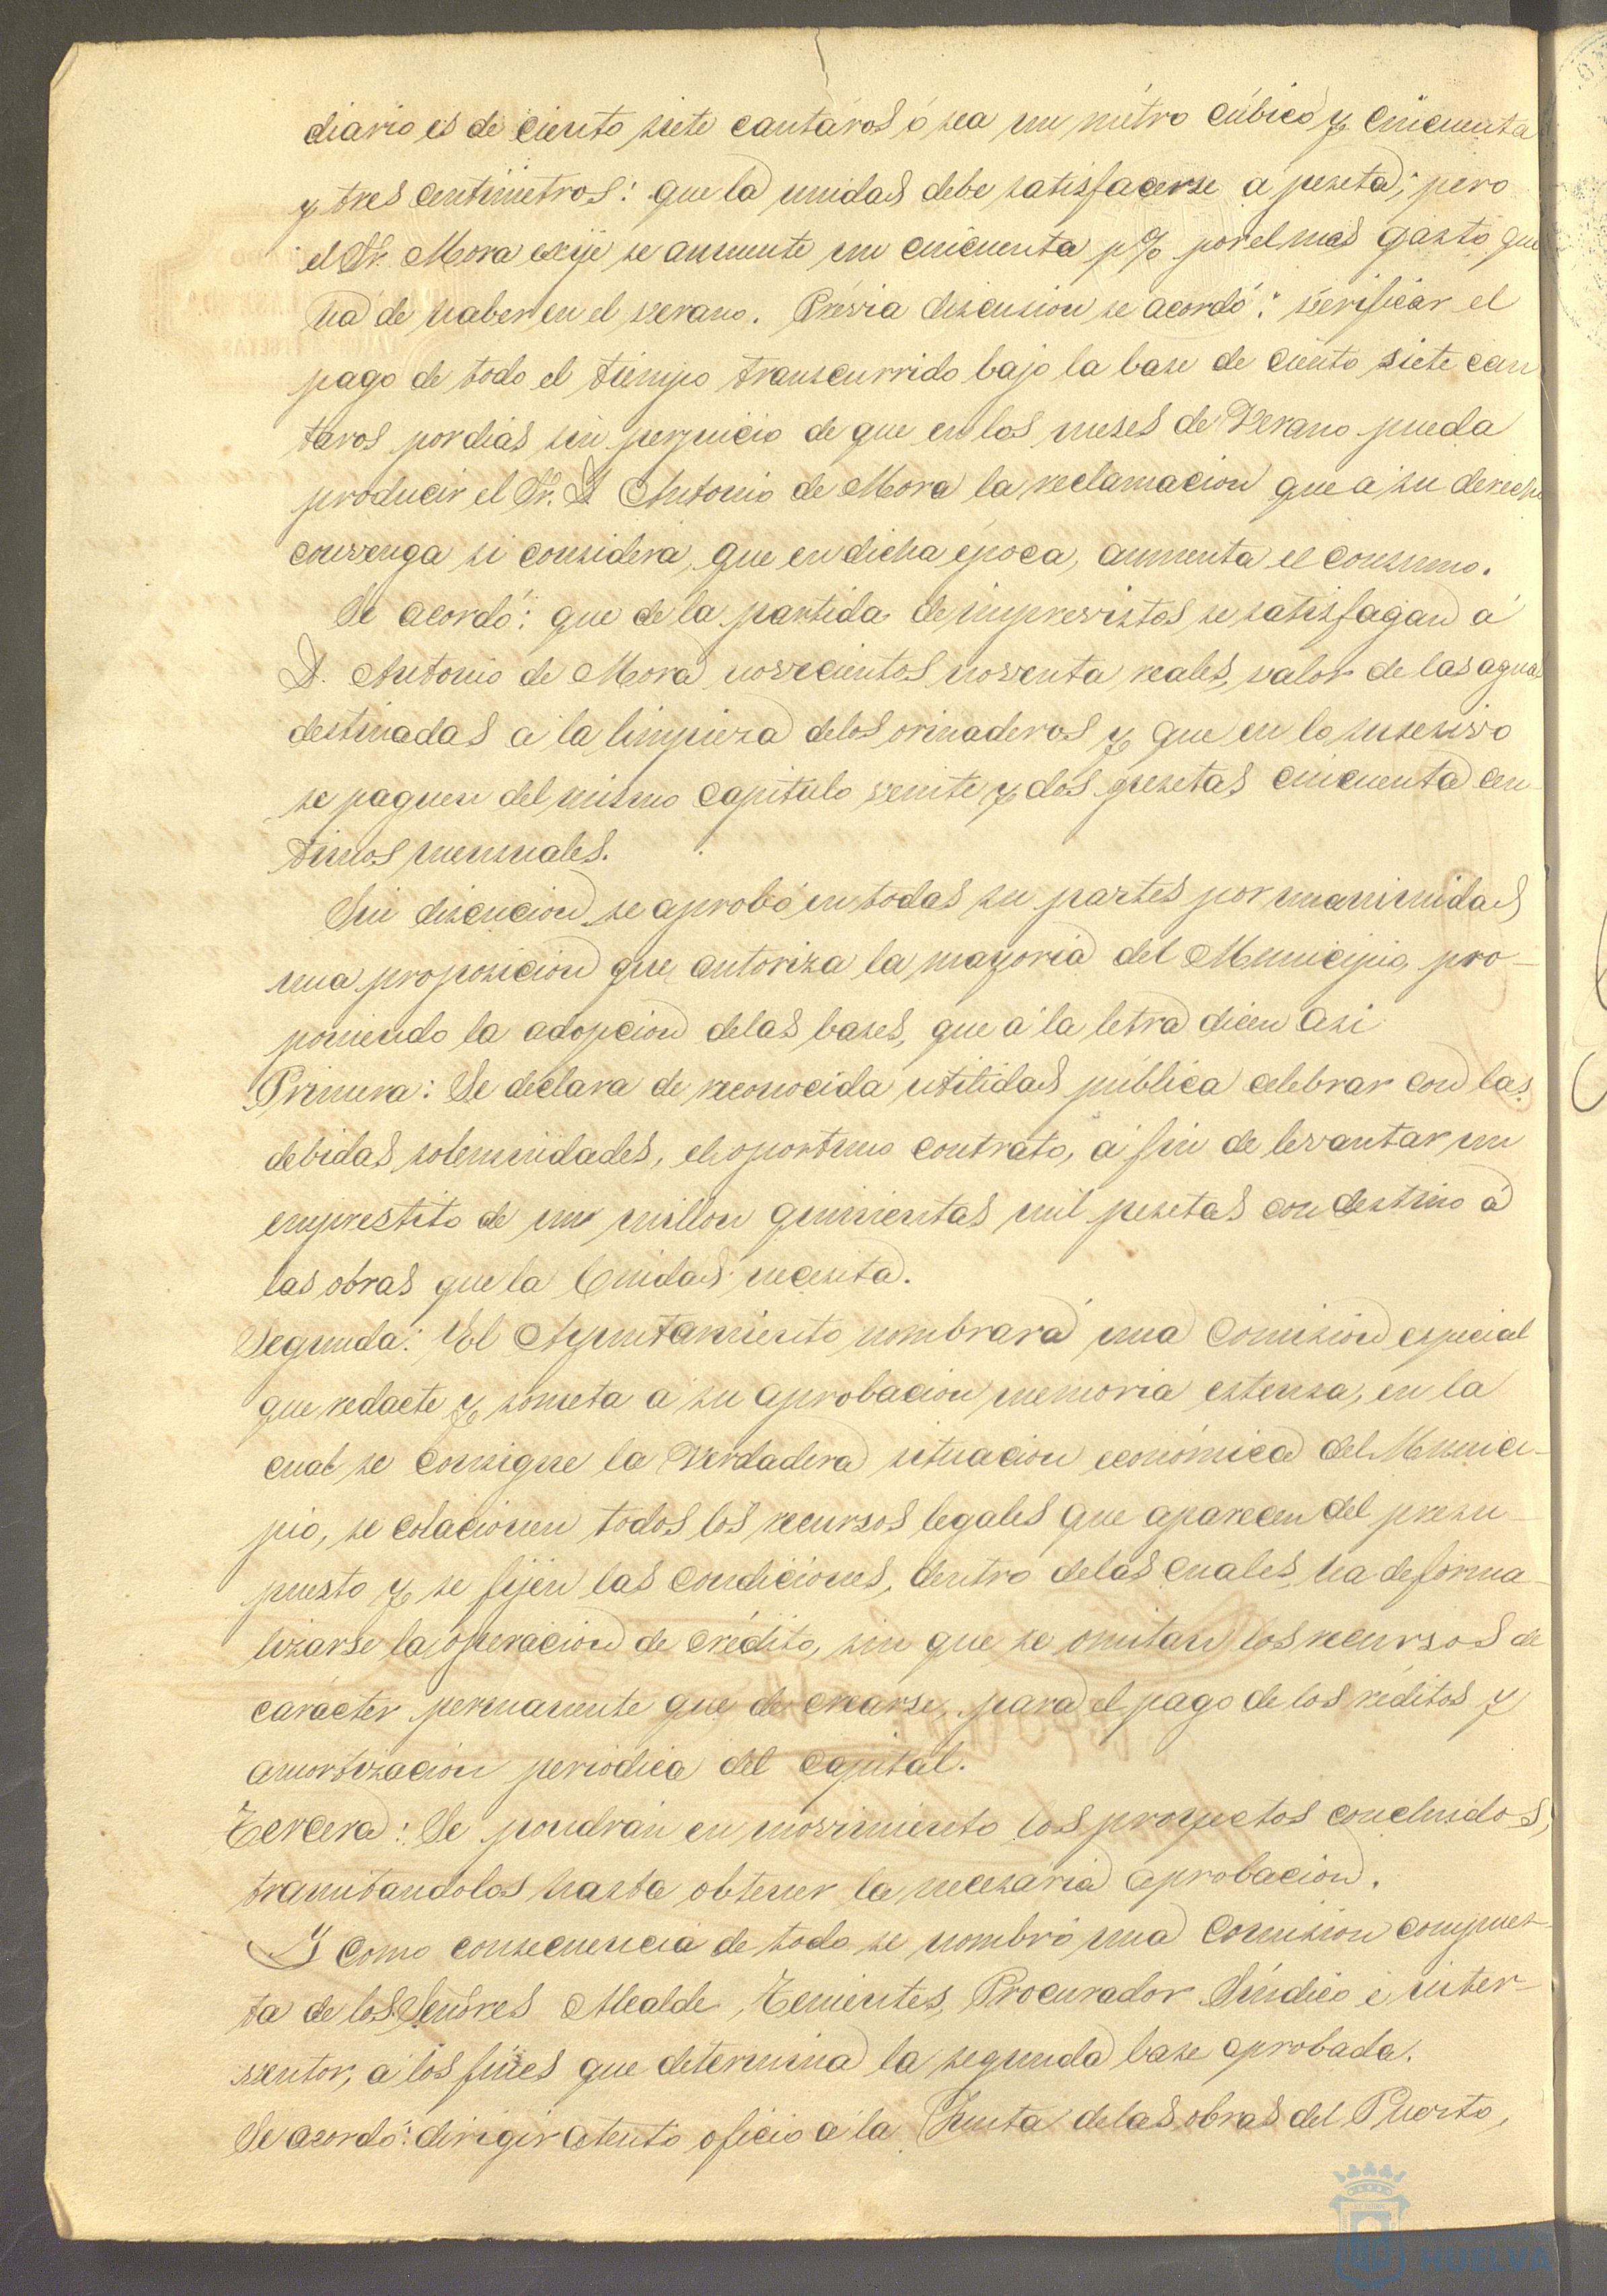 diario es de ciento siete cantáros ó sea un métro cúbico y cincuenta
y tres centímetros: que la unidad debe satisfacerse a peseta; pero
el Sr. Mora exije se aumente un cincuenta p% por el mas gasto que
há de haber en el verano. Prévia discusion se acordó: verificar el
pago de todo el tiempo transcurrido bajo la base de ciento siete can
taros por dias sin perjuicio de que en los meses de Verano pueda
producir el Sr. D Antonio de Mora la reclamacion que a su derecho
convenga si considera, que en dicha época, aumenta el consumo.
Se acordó: que de la partida de imprevistos se satisfagan á
D. Antonio de Mora novecientos noventa reales, valor de las aguas
destinadas a la limpieza delos orinaderos y que en lo sucesivo
se paguen del mismo capitulo veinte y dos pesetas cincuenta cen
timos mensuales.
Sin discucion se aprobó en todas su partes por unanimidad
una proposicion que autoriza la mayoria del Municipio, pro-
poniendo la adopcion delas bases, que á la letra dicen asi
Primera: Se declara de reconocida utilidad pública celebrar con las
debidas solemnidades, el oportuno contrato, á fin de levantar un
emprestito de un millon quinientas mil pesetas con destino á
las obras que la Ciudad necesita.
Segunda: El Ayuntamiento nombrará una Comision especial
que redacte y someta a su aprobacion memoria estensa, en la
cual se consigne la Verdadera situacion económica del Munici-
pio, se colacionen todos los recursos legales que aparecen del presu-
puesto y se fijen las condiciones, dentro delas cuales ha de forma-
lizarse la operacion de crédito, sin que se omitan los recursos de
carácter permanente que de crearse, para el pago de los réditos y
amortizacion periodica del capital.
Tercera: Se pondrán en movimiento los proyectos concluidos,
tramitandolos hasta obtener la necesaria aprobacion.
Y como consecuencia de todo se nombró una Comision compues-
ta de los Señores Alcalde, Tenientes, Procurador Síndico é inter-
ventor, a los fines que determina la segunda base aprobada.
Se acordó: dirigir atento oficio a la Junta delas obras del Puerto,
HUELVA